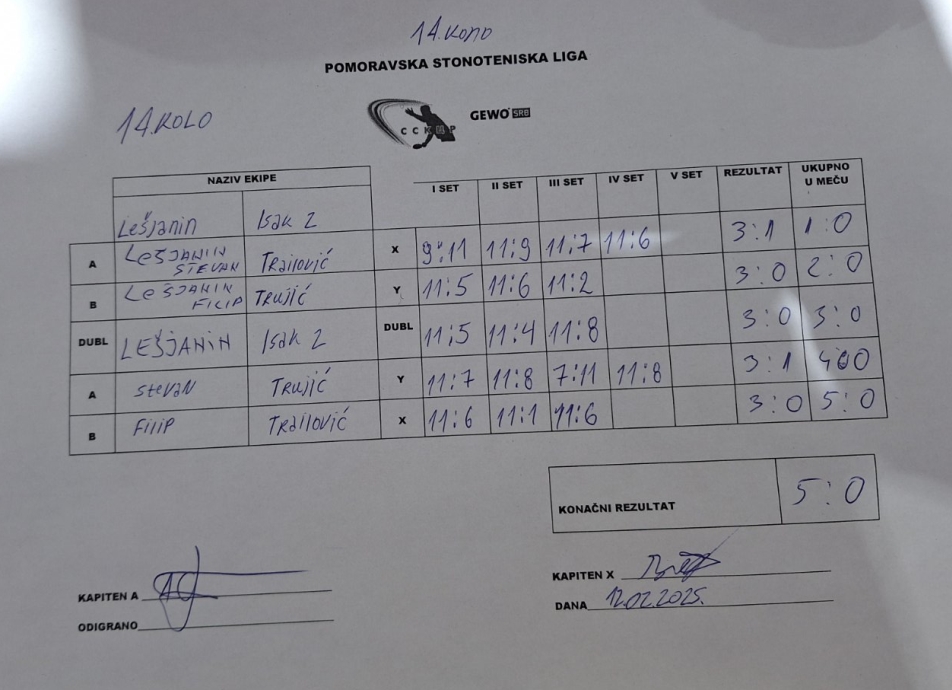 14. KOLO
POMORAVSKA STONOTENISKA LIGA
14. KOLO
GEWO SRB
NAZIV EKIPE I SET II SET III SET IV SET V SET REZULTAT UKUPNO U MEČU
Lešjanin Isak 2
A LEŠJANIN STEVAN Trailović X 9:11 11:9 11:7 11:6 3:1 1:0
B LEŠJANIN FILIP TRUJIĆ Y 11:5 11:6 11:2 3:0 2:0
DUBL LEŠJANIN Isak 2 DUBL 11:5 11:4 11:8 3:0 3:0
A STEVAN TRUJIĆ Y 11:7 11:8 7:11 11:8 3:1 4:0
B FILIP TRAILOVIĆ X 11:6 11:1 11:6 3:0 5:0
KONAČNI REZULTAT 5:0
KAPITEN A
KAPITEN X
ODIGRANO
DANA 12.02.2025.